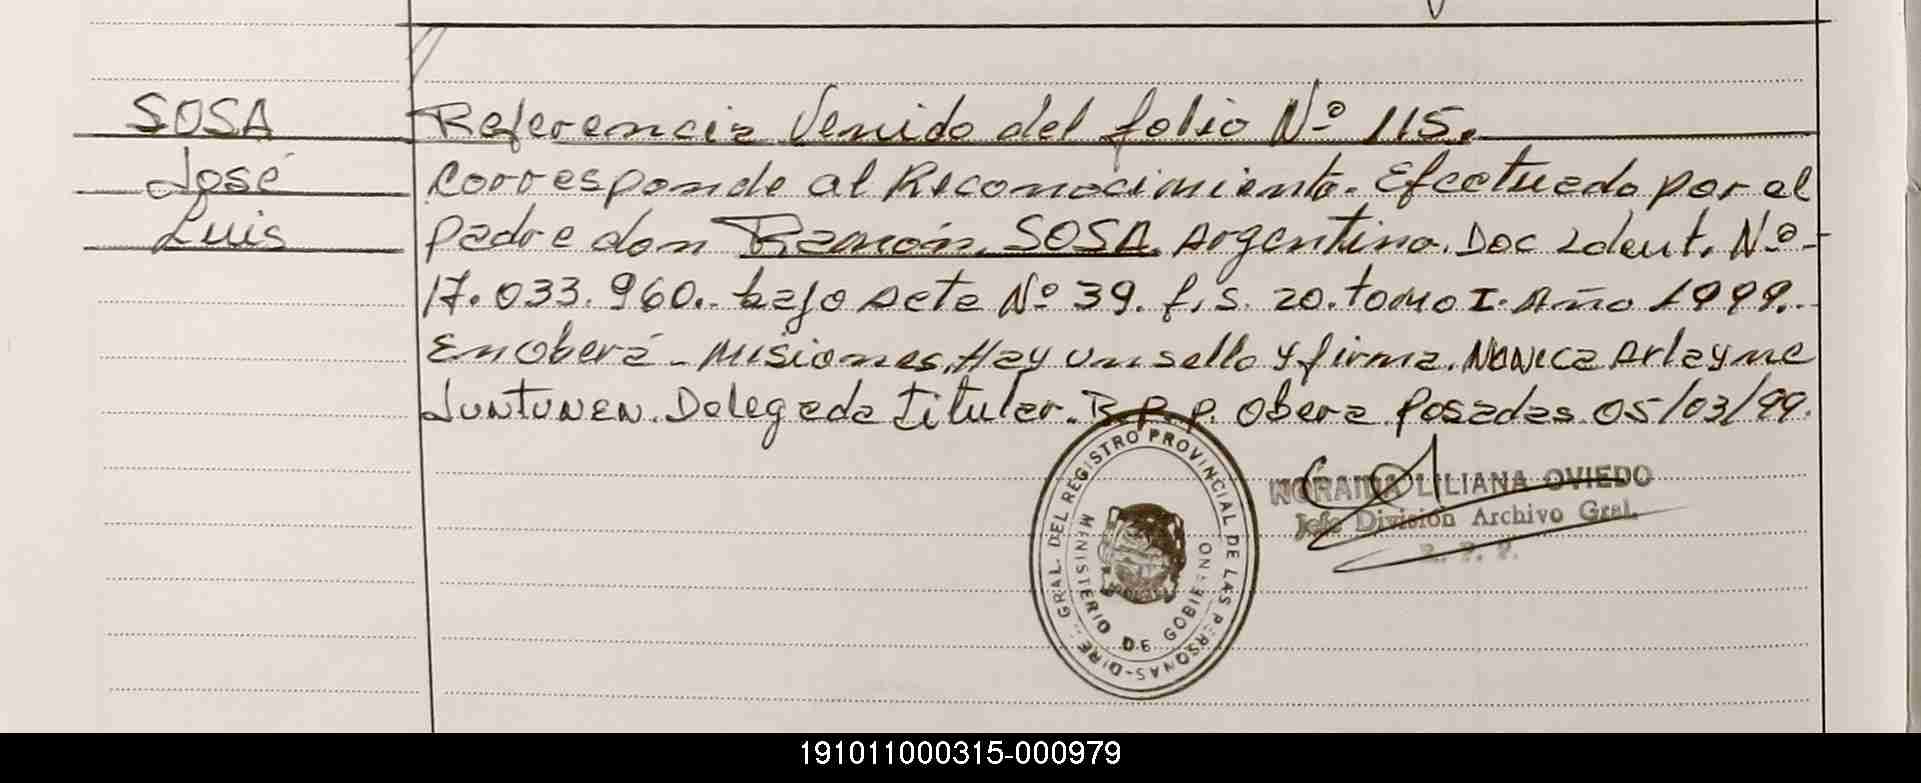 SOSA
José
Luis
Referencia Venido del folio Nº 115.
Corresponde al Reconocimiento. Efectuado por el
padre don Ramón SOSA. Argentino. Doc Ident. Nº
17.033.960. bajo Acta Nº 39. f.s. 20. tomo I. Año 1999.
En Oberá - Misiones. Hay un sello y firma. Monica Arlayne
JUNTUNEN. Delegada titular. R.P.P. Obera. Posadas. 05/03/99.
GRAL. DEL REGISTRO PROVINCIAL DE LAS PERSONAS-DIRE
MINISTERIO DE GOBIERNO
NORAIMA LILIANA OVIEDO
Jefe División Archivo Gral.
R. P. P.
191011000315-000979